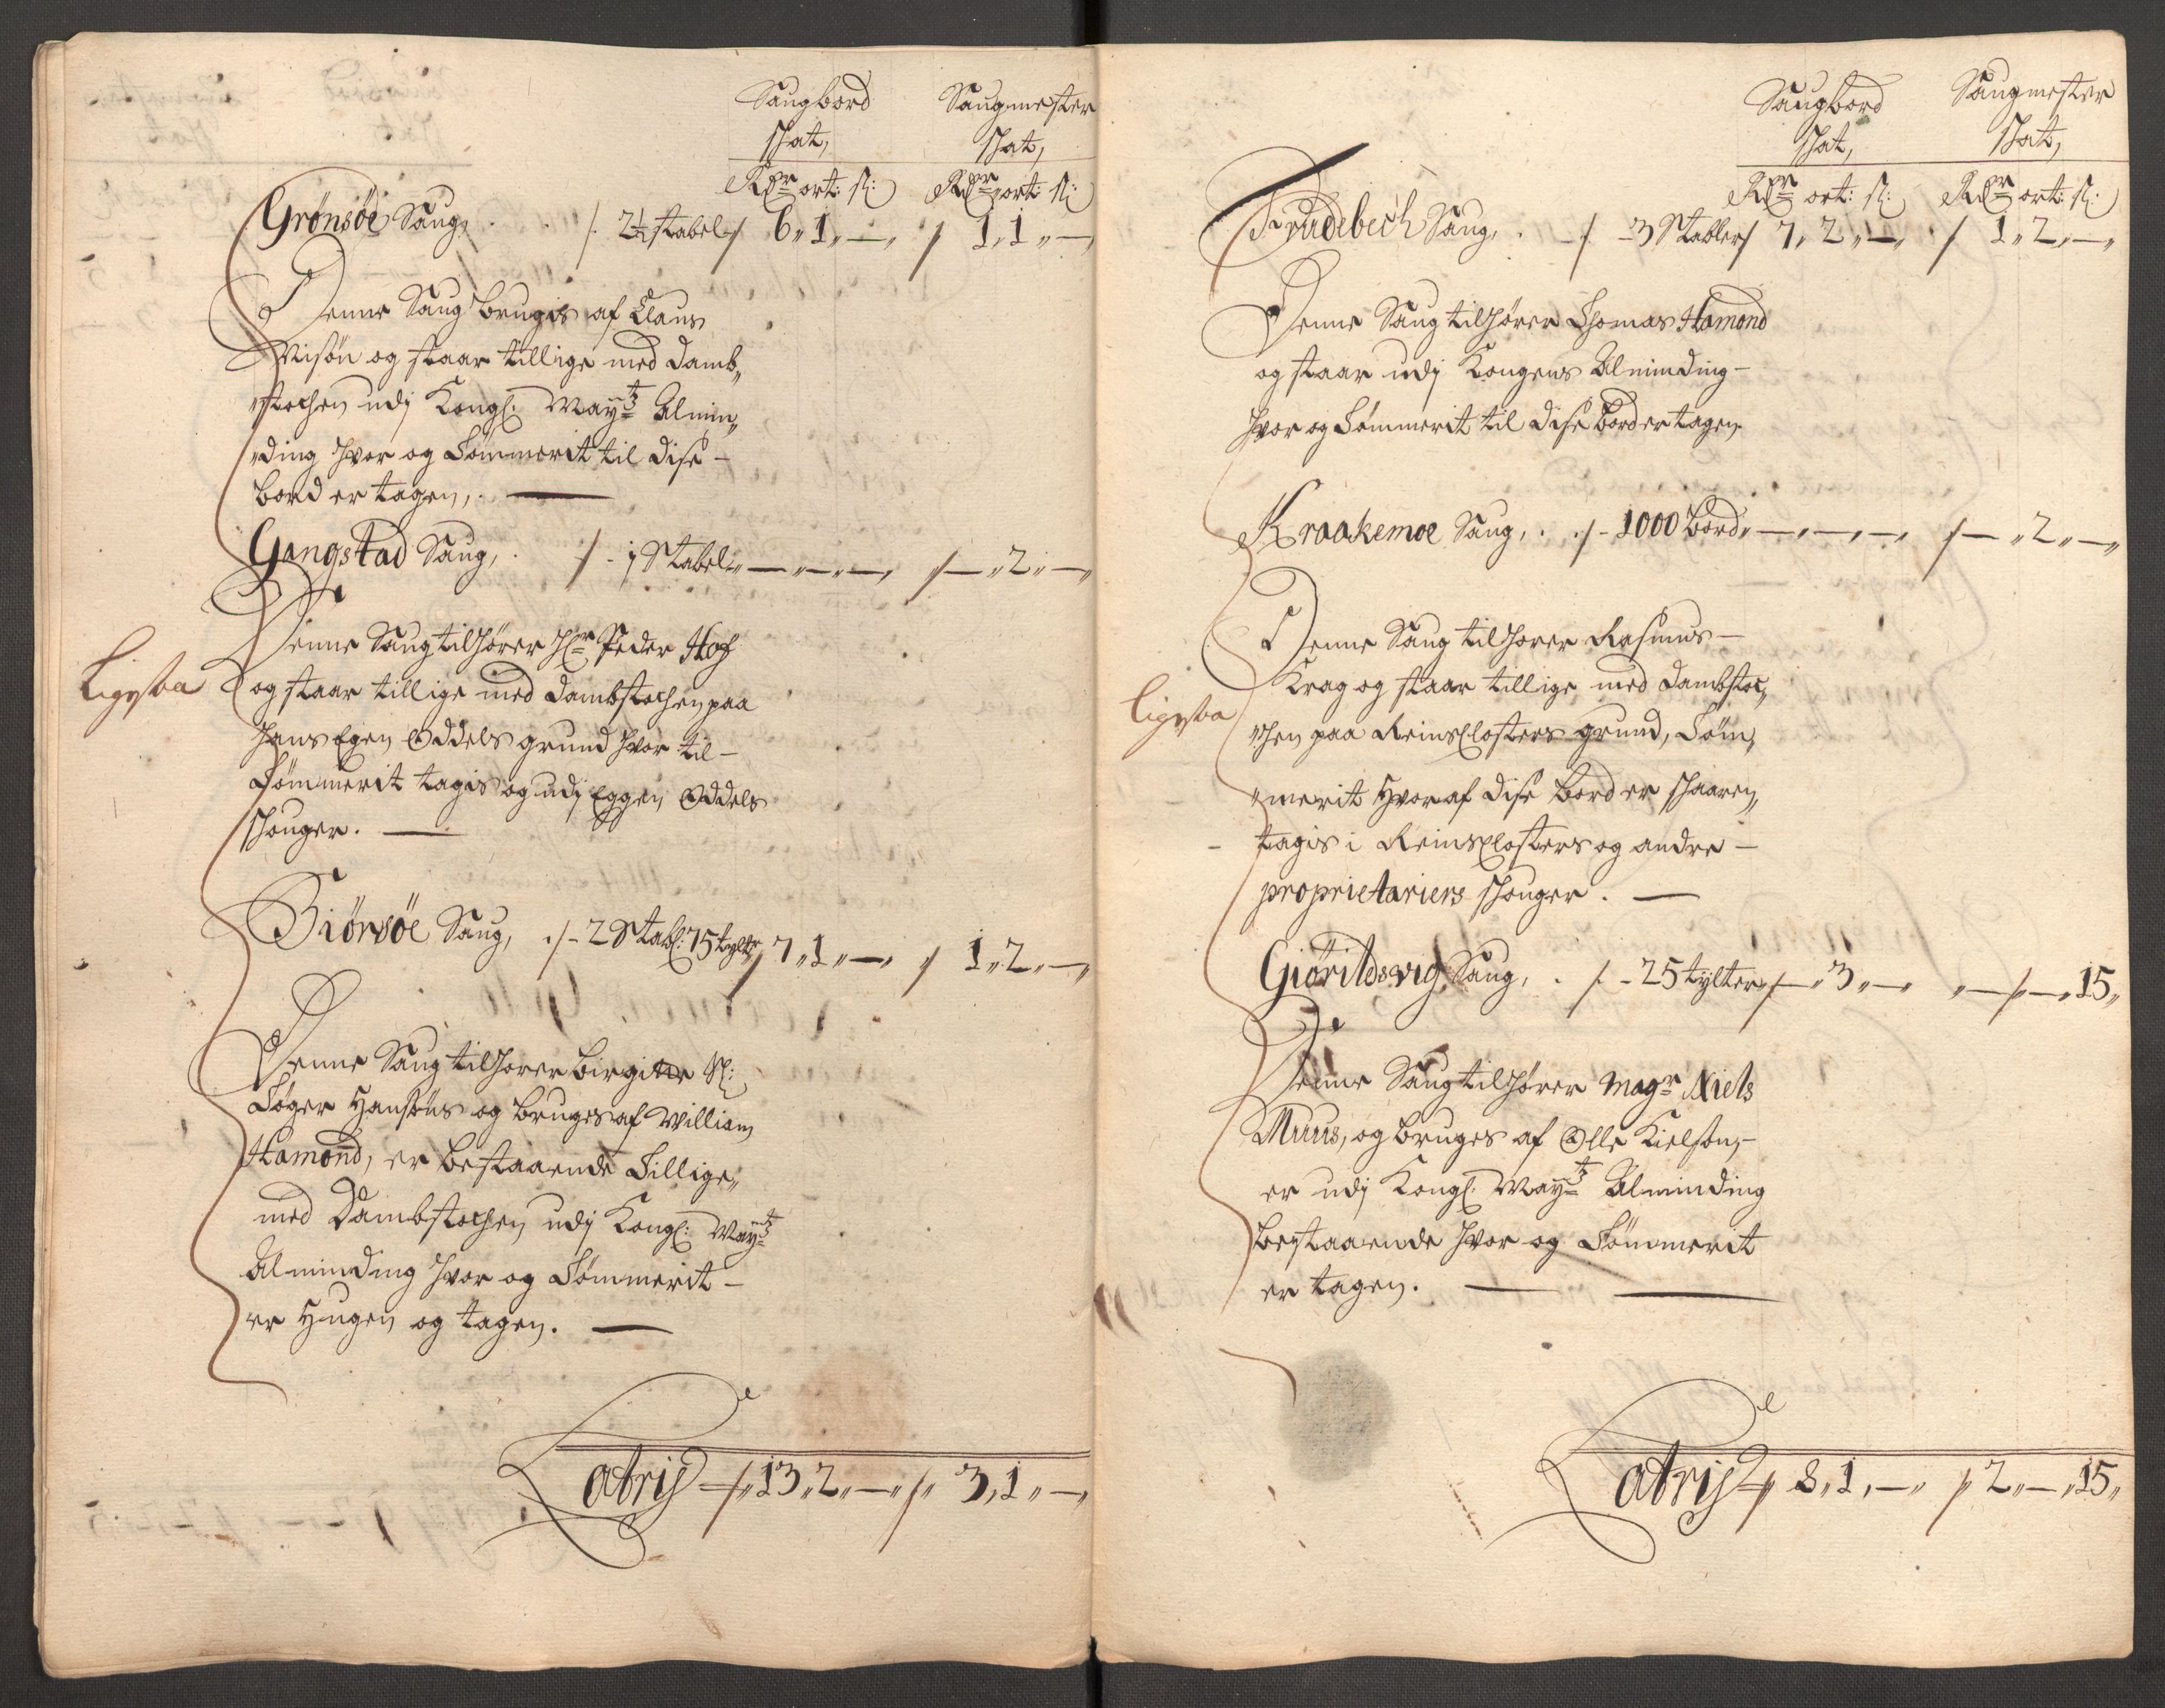 Saugbord Saugmester
skat, skat,
Rdr ort: sk: Rdr ort: sk:
Grönsöe Saug, . . /. 2½ stabel / 6,, 1,, —,, / 1,, 1,, —,
Denne Saug brugis af Claus
Nisön og staar tillige med Damb,,
,,stochen udj Kongl: Maytz Almin,,
,,ding hvor og Tömmerit til dise –
bord er tagen, . —
Gangstad Saug, . /. 1 Stabel,, —,, —,, —,, /. —,, 2,, —,,
Denne Saug tilhörer Hr Peder Hof
Ligesaa
og staar tillige med Dambstochen paa
hans Egen Oddels grund hvor til –
Tömmerit tagis og udj Eggen Oddels
skouger. —
Biörsöe Saug, ./. 2 Stabl: 75 tylt / 7,, 1,, —,, / 1,, 2,, —,,
Denne Saug tilhorer Birgitte Sl:
Söger Hansöns og bruges af William
Hamond, er bestaaende Tillige,,
med Dambstochen udj Kongl: Maytz
Alminding hvor og Tömmerit –
er Hugen og tagen. —
Latris /,, 13,, 2,, —,, /,, 3,, 1,, —,,
Saugbord Saugmester
skat, skat,
Rdr ort: sk: Rdr ort: sk:
Frudebech Saug, . /. 3 Stabler / 7,, 2,, —,, / 1,, 2,, —,,
Denne Saug tilhörer Thomas Hamond
og staar udj Kongens Alminding –
hvor og Tömmerit til dise bord er tagen
Kraakemoe Saug, . ./. 1000 bord,, —,, —,, —,, /. —,, 2,, —,,
Denne Saug tilhorer Rasmus –
Krag og staar tillige med Dambstoc,,
Ligesaa
,,hen paa Reins Closters grund, Töm,,
,,merit Hvoraf dise bord er skaaren,
tagis i Reins Closters og andre –
proprietariers skouger. —
Giörildsvig Saug, . /. 25 tylter /. —,, 3,, —,, ,, — /. —,, 15,,
Denne Saug tilhörer Magr Niels
Muus, og bruges af Olle Kielsön, –
er udj Kongl: Maytz Alminding
bestaaende hvor og Tömmerit
er tagen. — —
Latris /. 8,, 1,, —,, / 2,, —,, 15,,